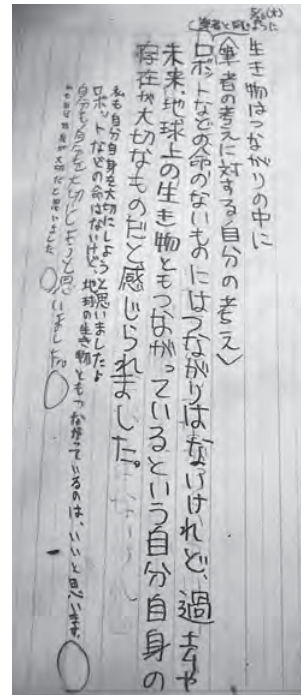 5/6(木)
(筆者と同じように
生き物はつながりの中に
〈筆者の考えに対する自分の考え〉
ロボットなどの命のないものにはつながりはないけれど、過去や
未来、地球上の生き物ともつながっているという自分自身の
存在が大切なものだと感じられました。
私も自分自身を大切にしようと思いましたよ
ロボットなどの命はないけど、地球の生き物ともつながているのは、いいと思います。
自分も自分を大切にしようと思いました。
自分が大切だと思いました